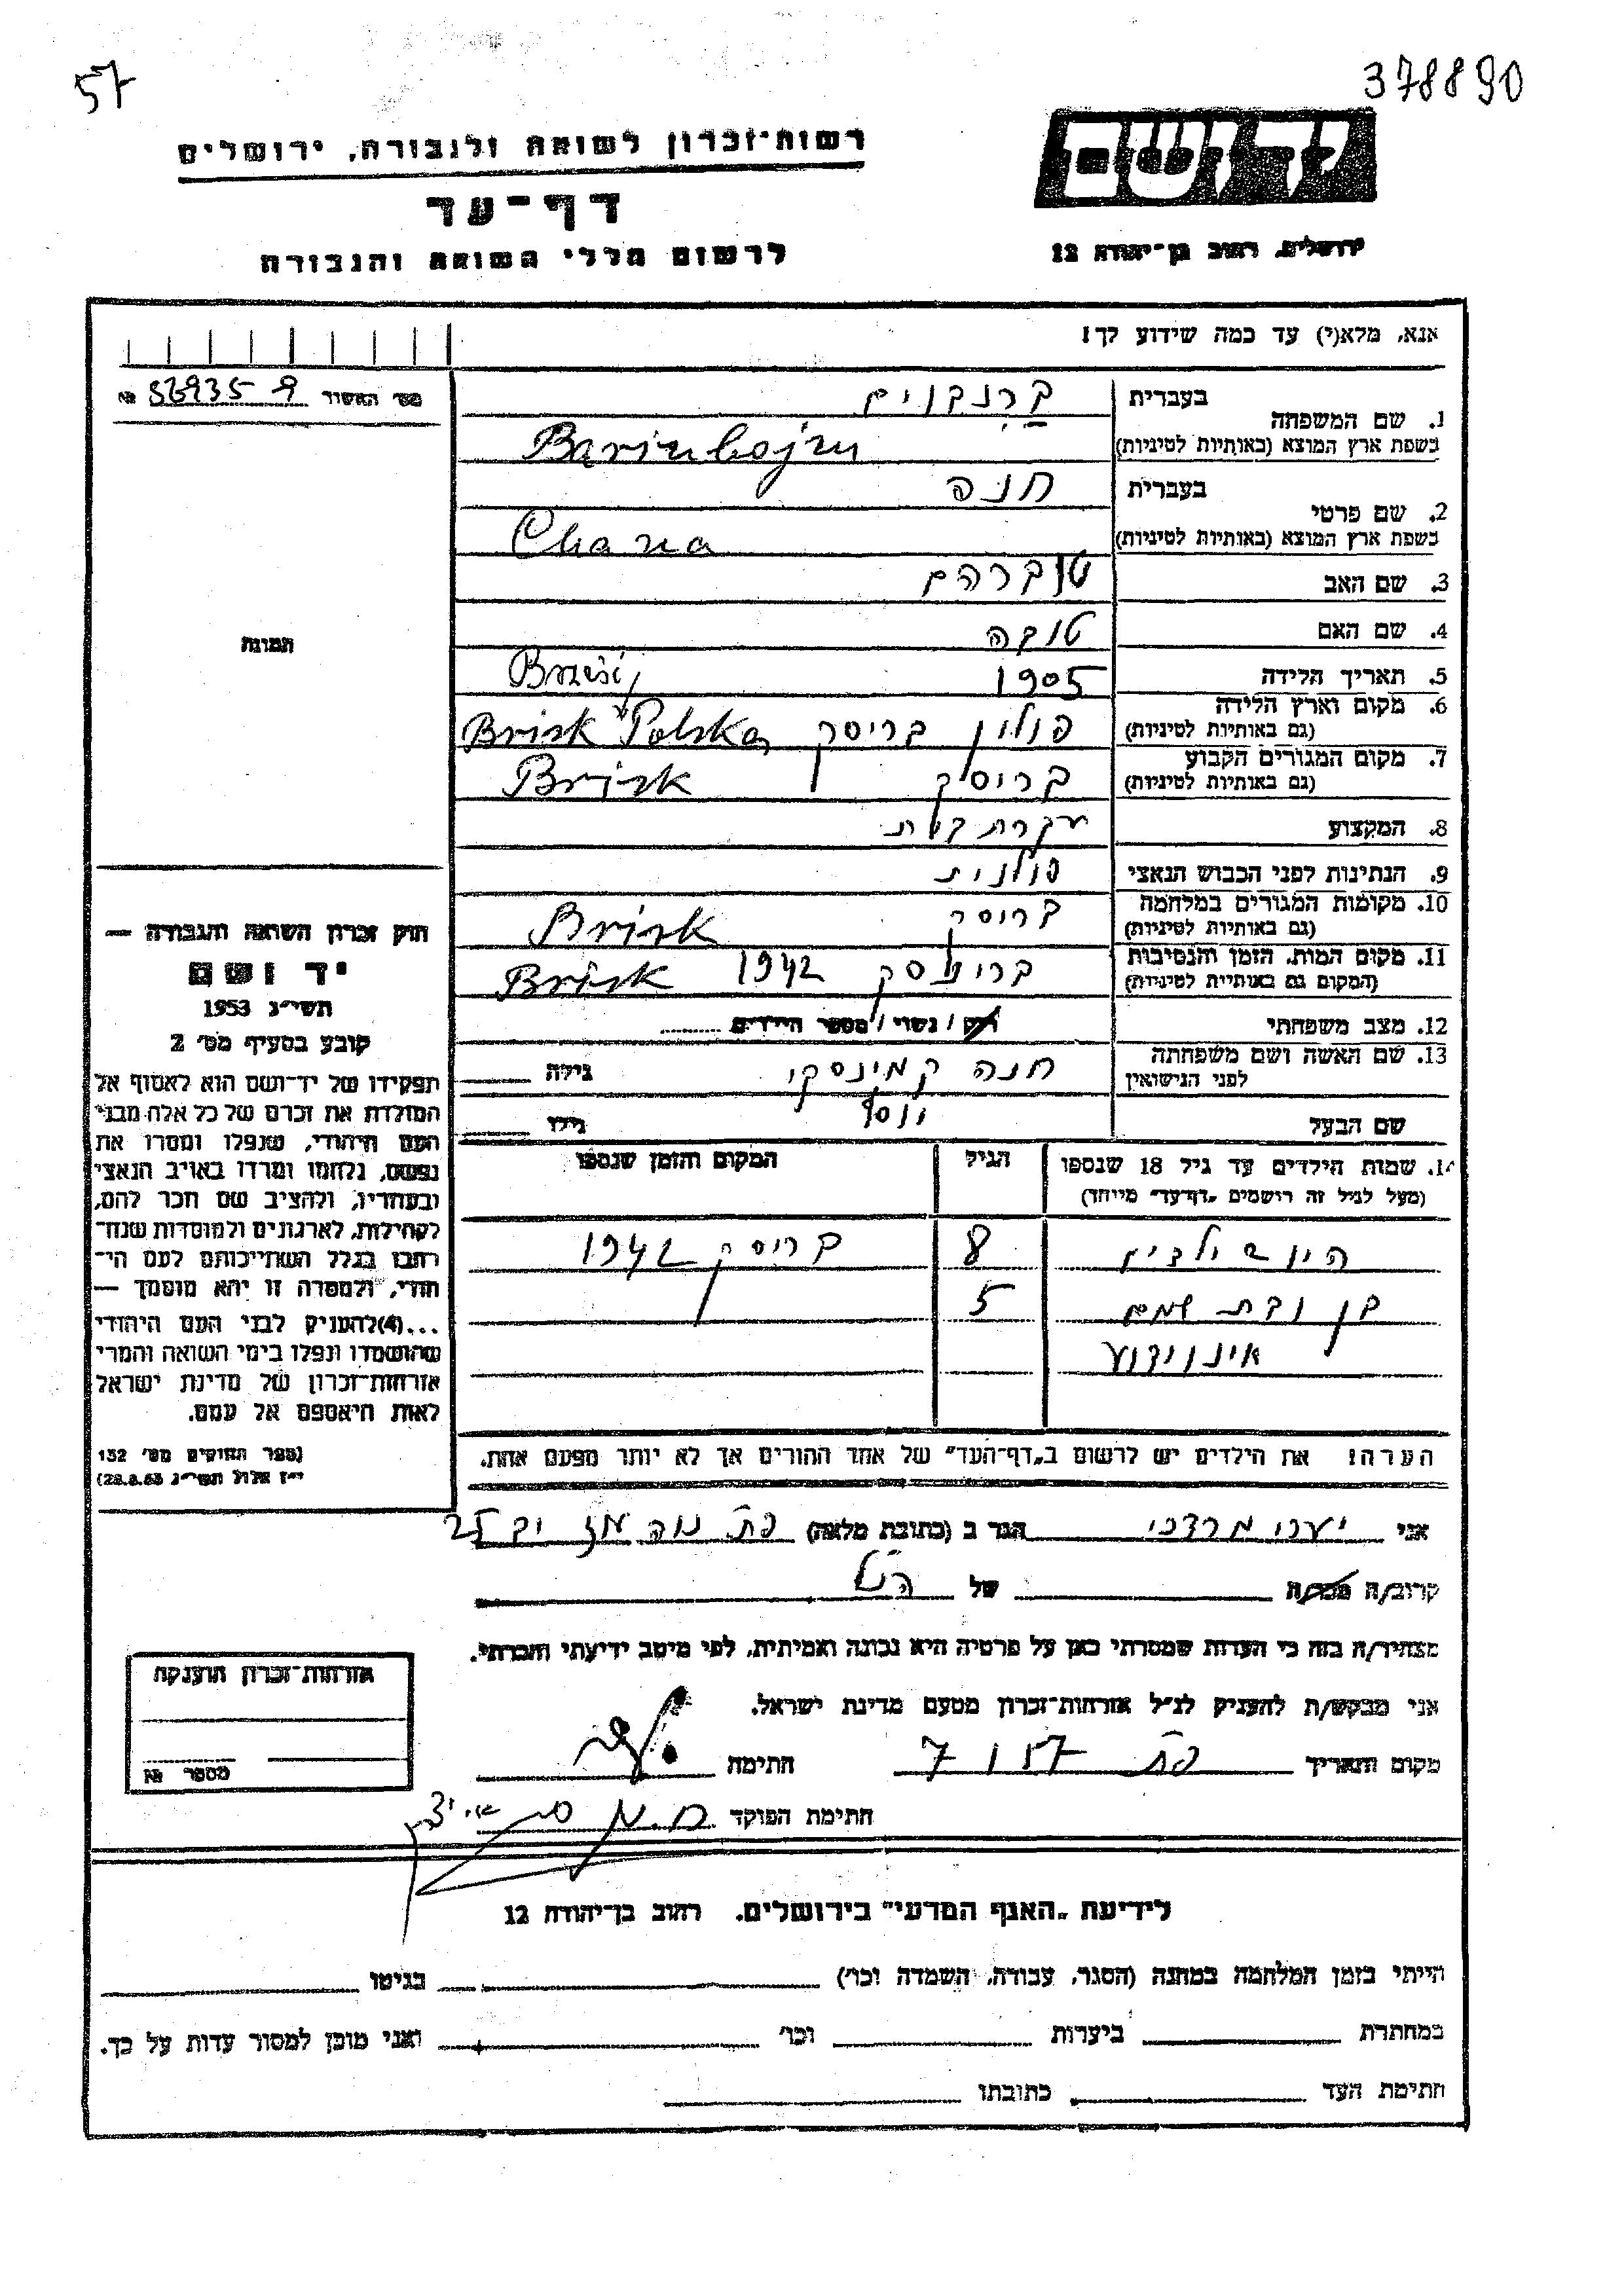 57
378890
יד ושם
רשות־זכרון לשואה ולגבורה, ירושלים
דף־עד
לרשום חללי השואה והגבורה
ירושלים, רחוב בן־יהודה 12
אנא, מלא(י) עד כמה שידוע לך!
1. שם המשפחה
בעברית ברנבוים
בשפת ארץ המוצא (באותיות לטיניות) Barinbojm
2. שם פרטי
בעברית חנה
בשפת ארץ המוצא (באותיות לטיניות) Chana
3. שם האב אברהם
4. שם האם טובה
5. תאריך הלידה 1905
6. מקום וארץ הלידה (גם באותיות לטיניות) פולין בריסק Brisk Polska Brześć
7. מקום המגורים הקבוע (גם באותיות לטיניות) בריסק Brisk
8. המקצוע עקרת בית
9. הנתינות לפני הכבוש הנאצי פולנית
10. מקומות המגורים במלחמה (גם באותיות לטיניות) בריסק Brisk
11. מקום המות, הזמן והנסיבות (המקום גם באותיות לטיניות) בריסק 1942 Brisk
12. מצב משפחתי רוק / נשוי / מספר הילדים
13. שם האשה ושם משפחתה לפני הנישואין חנה קמינסקי גילה
שם הבעל יוסף גילו
14. שמות הילדים עד גיל 18 שנספו
(מעל לגיל זה רושמים „דף־עד" מיוחד)
הגיל
המקום והזמן שנספו
היו 2 ילדים 8 בריסק 1942
בן ובת שמם 5
אינו ידוע
הערה! את הילדים יש לרשום ב„דף־העד" של אחד ההורים אך לא יותר מפעם אחת.
מס׳ האשור
№
תמונה
חוק זכרון השואה והגבורה —
יד ושם
תשי״ג 1953
קובע בסעיף מס׳ 2
תפקידו של יד־ושם הוא לאסוף אל
המולדת את זכרם של כל אלה מבני
העם היהודי, שנפלו ומסרו את
נפשם, נלחמו ומרדו באויב הנאצי
ובעוזריו, ולהציב שם וזכר להם,
לקהילות, לארגונים ולמוסדות שנח־
רבו בגלל השתייכותם לעם הי־
הודי, ולמטרה זו יהא מוסמך —
...(4)להעניק לבני העם היהודי
שהושמדו ונפלו בימי השואה והמרי
אזרחות־זכרון של מדינת ישראל
לאות היאספם אל עמם.
(ספר החוקים מס׳ 132
י״ז אלול תשי״ג 28.8.53)
אני יערי מרדכי הגר ב (כתובת מלאה) פ״ת נוה
קרוב/ה מכר/ה של הנ״ל
מצהיר/ה בזה כי העדות שמסרתי כאן על פרטיה היא נכונה ואמיתית, לפי מיטב ידיעתי והכרתי.
אני מבקש/ת להעניק לנ״ל אזרחות־זכרון מטעם מדינת ישראל.
מקום ותאריך פ״ת חתימה
חתימת הפוקד
אזרחות־זכרון הוענקה
מספר №
לידיעת „האגף המדעי" בירושלים. רחוב בן־יהודה 12
הייתי בזמן המלחמה במחנה (הסגר, עבודה, השמדה וכו׳) בגיטו
במחתרת ביערות וכו׳ ואני מוכן למסור עדות על כך.
חתימת העד כתובתו